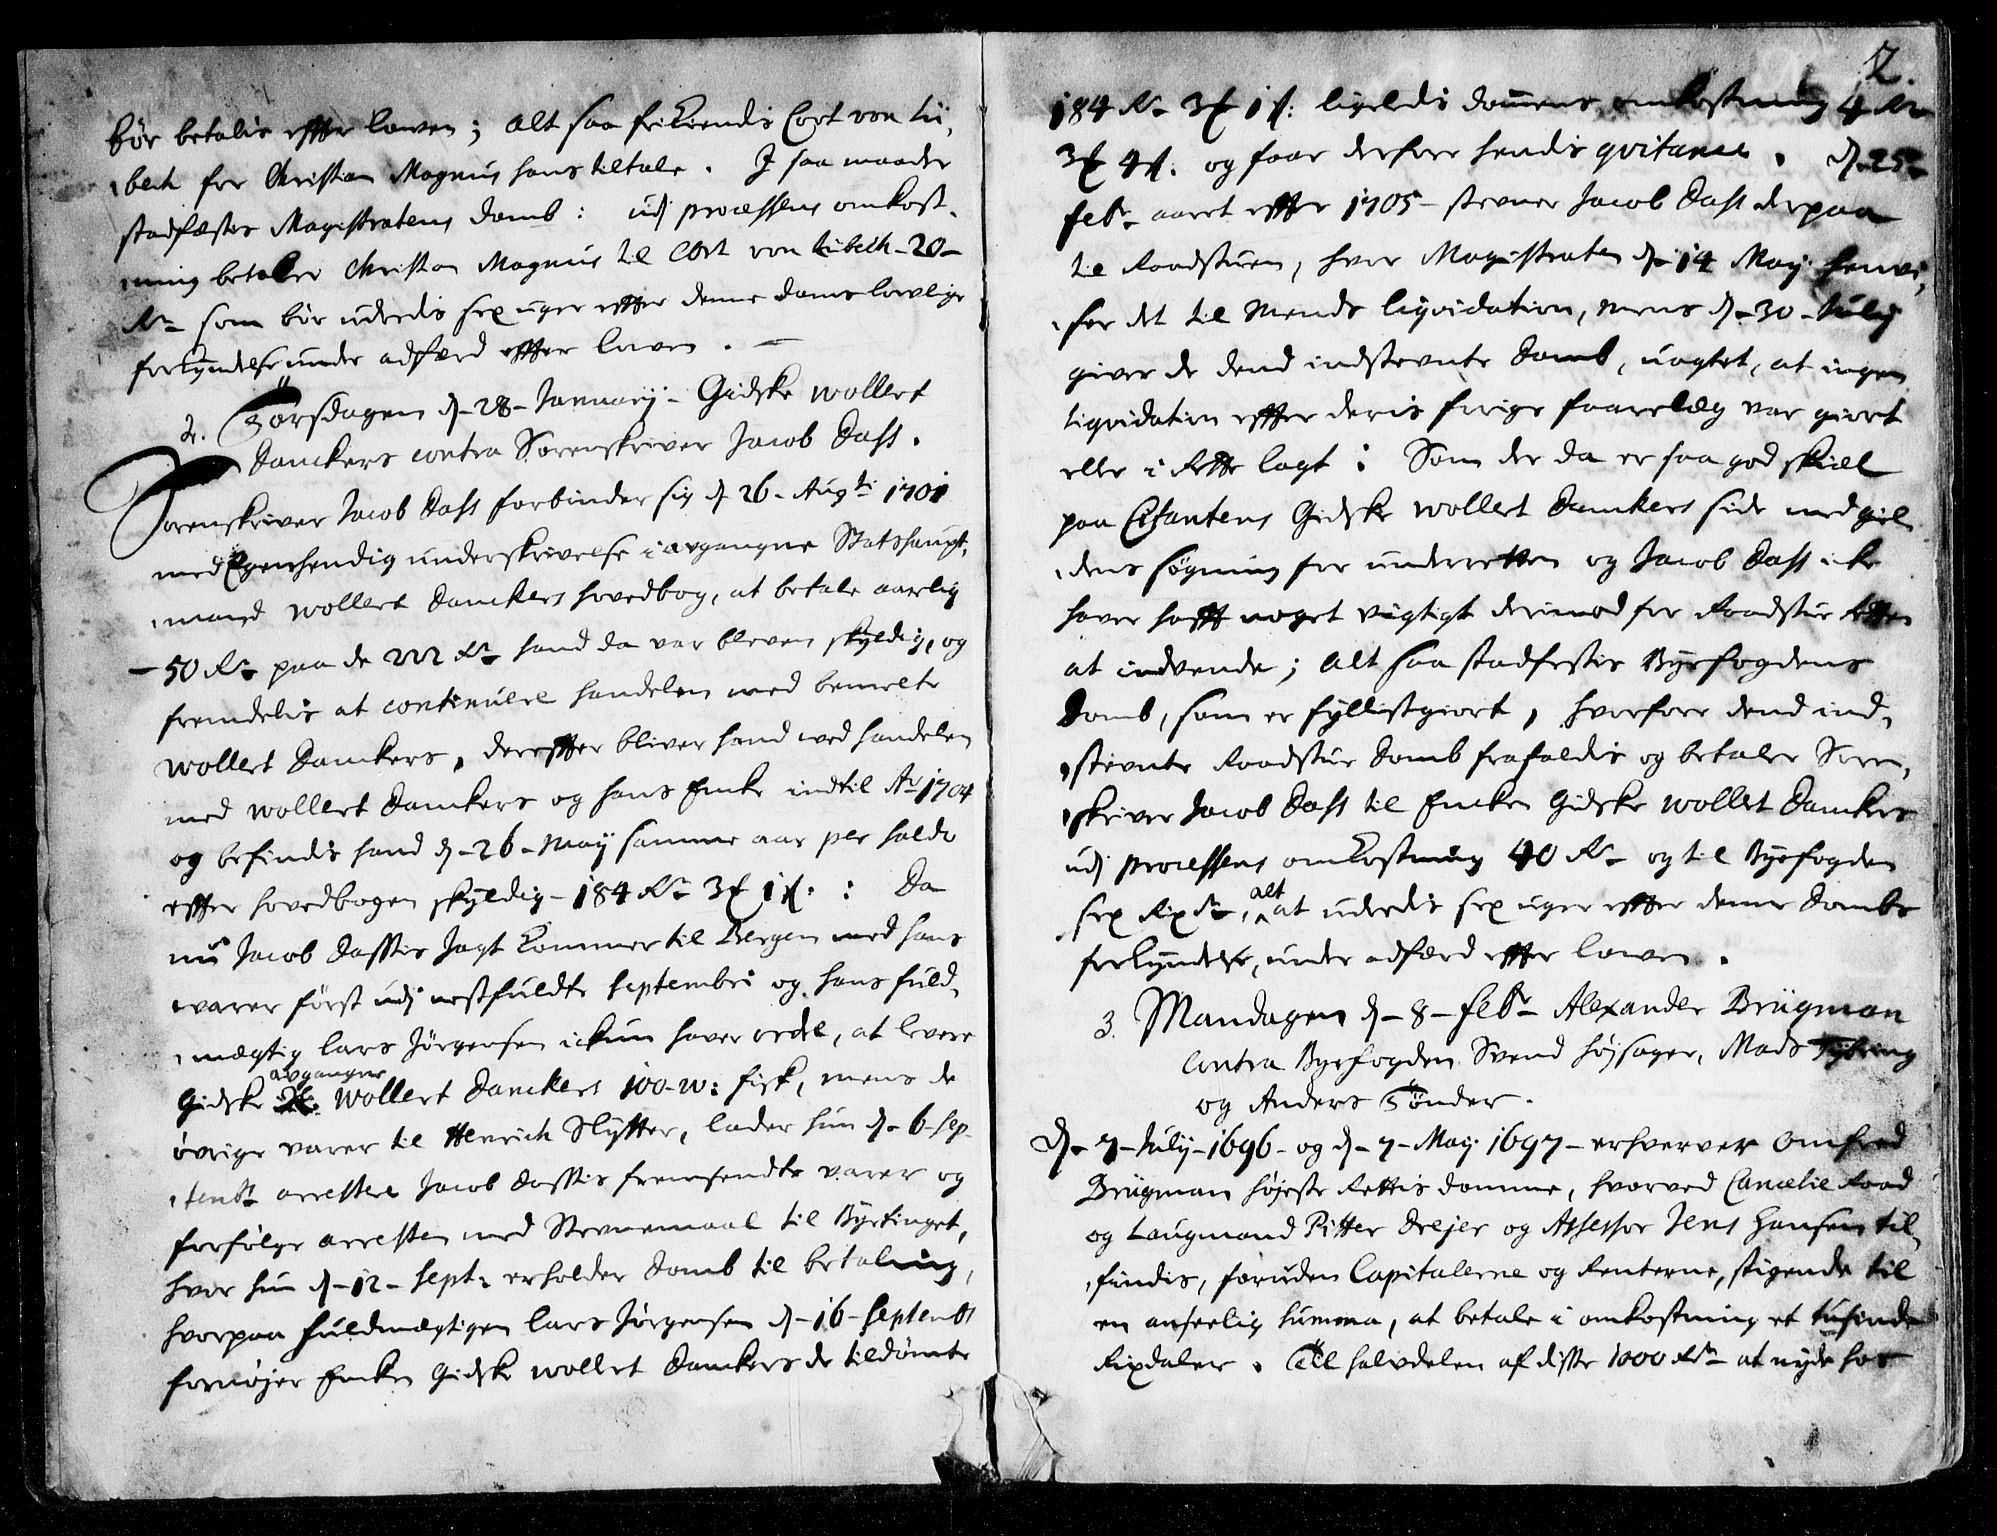 bør betalis effter lowen; Alt saa frikiendis Cort von Lü,
beck for Christian Magnus hans tiltale. I saa maader
stadfæstes Magistratens domb: udj processens omkost,
ning betaler Christian Magnus til Cort von Lübeck - 20 -
Rd som bør uderedis sex uger effter denne doms lovlige
forkyndelse under adfærd effter lowen. -
2. Torsdagen d - 28 - January - Gidske Wollert
Danckers contra Sorenskriver Jacob Dass.
Sorenskriver Jacob Dass forbinder sig d 26 - Augti 1701
med Egenhendig underskrivelse i avgangne Stadshaupt,
mand Wollert Danckers hovedbog, at betale aarlig
- 50 Rd paa de 222 Rd hand da var bleven skyldig, og
fremdelis at continuere handelen med bemelte
Wollert Danckers, dereffter bliver hand ved handelen
med Wollert Danckers og hans Encke indtil Ao 1704
og befindis hand d - 26 - May samme aar per Saldo
effter hovedbogen skyldig - 184 Rd 3 ₰ 1 ß. : Da
nu Jacob Dassis Jagt kommer til Bergen med hans
warer først udj nestfuldte Septembri og hans fuld,
mægtig Lars Jørgensen ickun haver ordre, at levere
avgangne
Gidske Wollert Danckers 100 - w: fisk, mens de
øvrige varer til Henrich Slytter, lader hun d - 6 - Sep,
tembr arrestere Jacob Dassis fremsendte varer og
forfølge arresten med Stevnemaal til Byetinget,
hvor hun d - 12 - Sept: erholder Domb til betaling,
hvorpaa fuldmegtigen Lars Jørgensen d - 16 - Septembr
fornøjer Encken Gidske Wollert Danckers de tildømte
2.
184 Rd 3 ₰ 1 ß: ligeledis dommens omkostning 4 Rd
3 ₰ 4 ß. og faar derfore hendis qvitance. d - 25 -
Febr aaret effter 1705 - stevner Jacob Dass derpaa
til Raadstuen, hvor Magistraten d - 14 May henvi,
ser det til Mends liqvidation, mens d - 30 - July
giver de dend indstevnte Domb, uagtet, at ingen
liqvidation effter deris forige forelæg var giort
eller i Rette lagt: Som der da er saa god skiæl
paa Citantens Gidske Wollert Danckers side med giel,
dens søgning for underretten og Jacob Dass icke
haver hafft noget vigtigt derimod for Raadstue Retten
at indvende; Alt saa stadfestis Byefogdens
Domb, som er fyllistgiort, hvorfore dend ind,
stevnte Raadstue Domb frafaldis og betaler Soren,
skriver Jacob Dass til Encken Gidske Wollert Danckers
udj processens omkostning 40 Rd og til Byefogden
alt
sex Rixdr, at uderedis sex uger effter denne Dombs
forkyndelse, under adfærd effter lowen.
3. Mandagen d - 8 - Febr Alexander Brügman
contra Byefogden Svend Højsager, Mads
og Anders Tønder.
d - 7 - July - 1696 - og d - 7 - May 1697 - erhverver Omfred
Brügman højeste Rettis domme, hvorved Cancelie Raad
og Laugmand Pitter Drejer og Assessor Jens Hansen til,
findis, foruden Capitalerne og Renterne, stigende til
en anseelig summa, at betale i omkostning et tusinde
Rixdaler. Till halvdelen af disse 1000 Rdr at nyde har